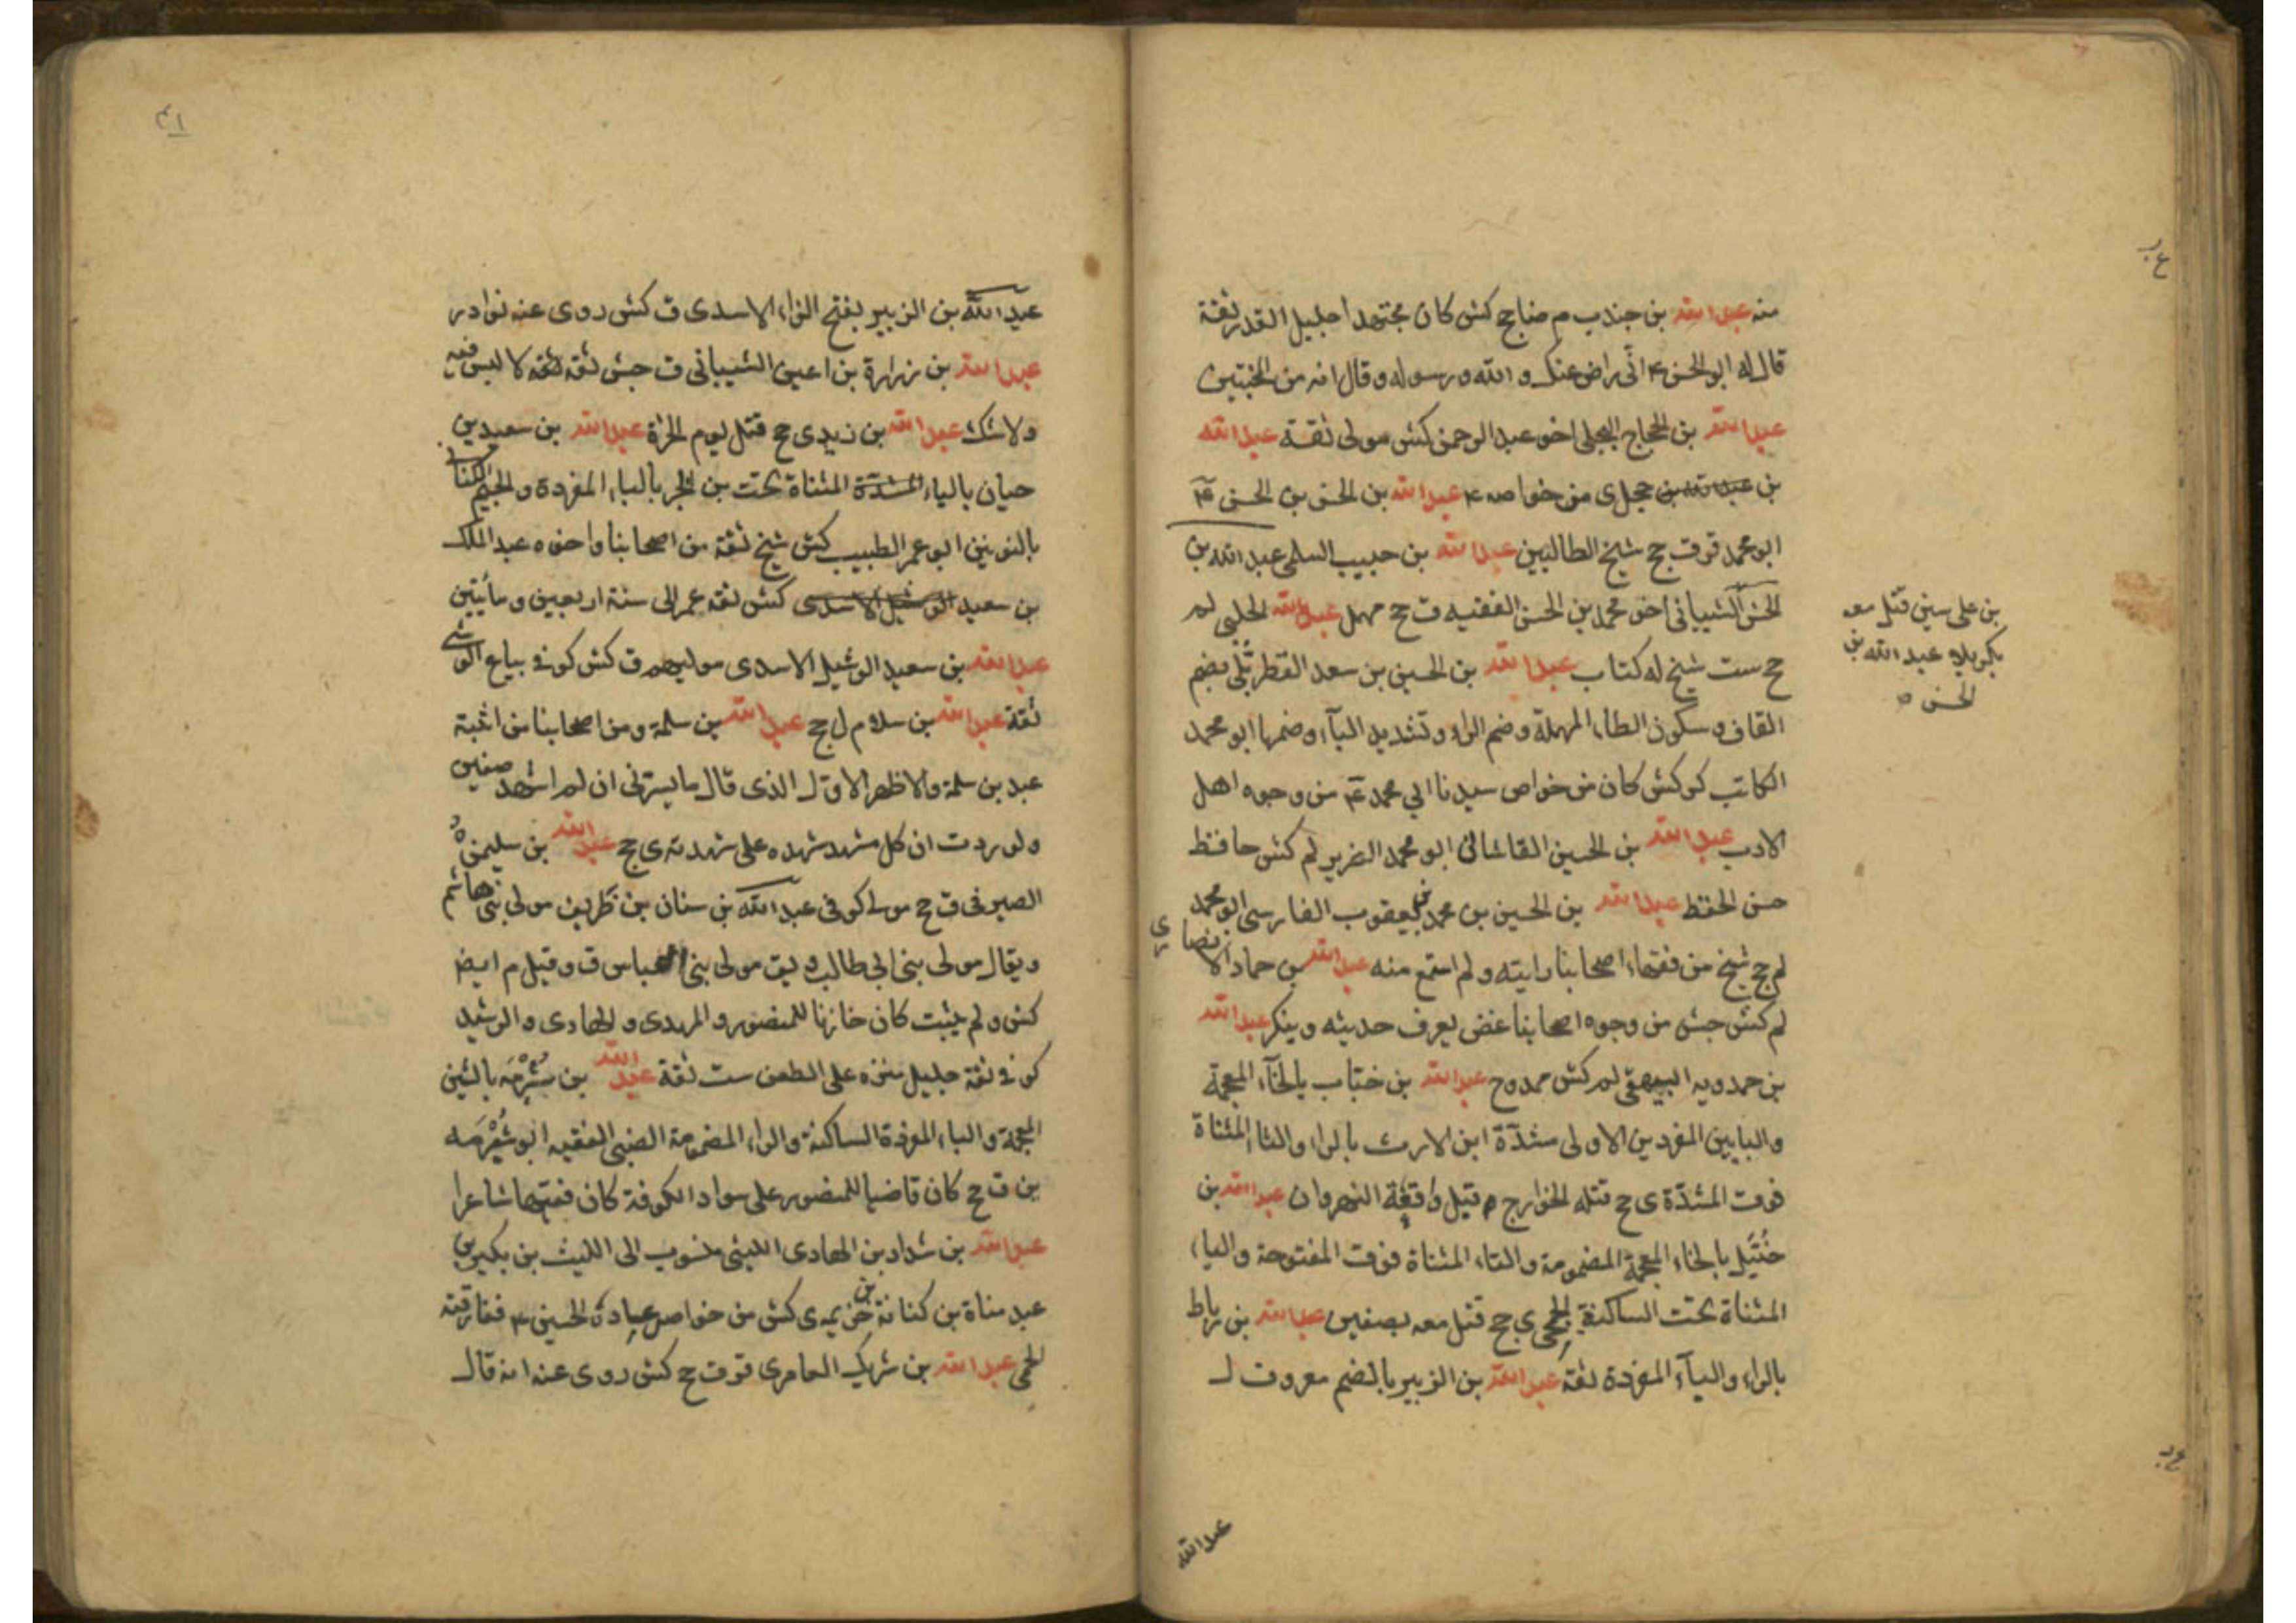 منه عبد الله بن جندب م ضا جح كش كان مجتهدا جليل القدر ثقة
قال له ابو الحسن ع انى راض عنك والله ورسوله وقال انه من المخبتين
عبد الله بن الحجاج البجلى اخو عبد الرحمن كش مولى ثقة عبد الله
بن حجل ى من خواصه ع عبد الله بن الحسن بن الحسن ع
ابو محمد قر ق جح شيخ الطالبيين عبد الله بن حبيب السلمى عبد الله بن
الحسن الشيبانى اخو محمد بن الحسن الفقيه ق جح مهمل عبد الله الحلبى لم
جح ست شيخ له كتاب عبد الله بن الحسين بن سعد القطربلى بضم
القاف وسكون الطاء المهملة وضم الراء وتشديد الباء وضمها ابو محمد
الكاتب كر كش كان من خواص سيدنا ابى محمد ع من وجوه اهل
الادب عبد الله بن الحسين القاشانى ابو محمد الضرير لم كش حافظ
حسن الحفظ عبد الله بن الحسين بن محمد بن يعقوب الفارسى ابو محمد
لم جح شيخ من فقهاء اصحابنا رايته ولم اسمع منه عبد الله بن حماد الانصارى
لم كش جش من وجوه اصحابنا غض يعرف حديثه وينكر عبد الله
بن حمدويه البيهقى لم كش ممدوح عبد الله بن خباب بالخاء المعجمة
والبايين المفردين الاولى مشددة ابن الارت بالراء والتاء المثناة
فوق المشددة ى جح قتله الخوارج قبل واقعة النهروان عبد الله بن
خُتَيل بالخاء المعجمة المضمومة والتاء المثناة فوق المفتوحة والياء
المثناة تحت الساكنة ى جح قتل معه بصفين عبد الله بن رباط
بالراء والباء المفردة ثقة عبد الله بن الزبير بالضم معروف ل
بن على سين قتل معه
بكربلاء عبد الله بن
الحسن ه
عبد الله
عبد الله بن الزبير بفتح الزاء الاسدى ق كش روى عنه نوادر
عبد الله بن زرارة بن اعين الشيبانى ق جش ثقة ثقة لا لبس فيه
ولا شك عبد الله بن زيد ى جح قتل يوم الحرة عبد الله بن سعيد بن
حيان بالياء المشددة المثناة تحت بن ابجر بالباء المفردة والجيم الكنانى
بالنونين ابو عمر الطبيب كش شيخ ثقة من اصحابنا واخوه عبد الملك
بن سعيد الوشيل الاسدى كش ثقة عمر الى سنة اربعين ومأتين
عبد الله بن سعيد الوشيل الاسدى موليهم ق كش كوفى بياع الوشى
ثقة عبد الله بن سلام ل جح عبد الله بن سلمة ومن اصحابنا من اثبته
عبد بن سلمة والاظهر الاول الذى قال ما يسرنى ان لم اشهد صفين
ولوردت ان كل مشهد شهده على شهدته ى جح عبد الله بن سليمن
الصيرفى ق جح مولى كوفى عبد الله بن سنان بن ظريف مولى بنى هاشم
ويقال مولى بنى ابى طالب ويق مولى بنى العباس ق وقيل م ايضا
كش ولم يثبت كان خازنا للمنصور والمهدى والهادى والرشيد
كوفى ثقة جليل منزه على الطعن ست ثقة عبد الله بن شبرمة بالشين
المعجمة والباء المفردة الساكنة والراء المضمومة الضبى الفقيه ابو شبرمه
ين ق جح كان قاضيا للمنصور على سواد الكوفة كان فقيها شاعرا
عبد الله بن شداد بن الهادى الليثى منسوب الى الليث بن بكير بن
عبد مناة بن كنانة بن خزيمه ى كش من خواصه عيادة الحسين ع ففارقته
الحمى عبد الله بن شريك العامرى قر ق جح كش روى عنه انه قال